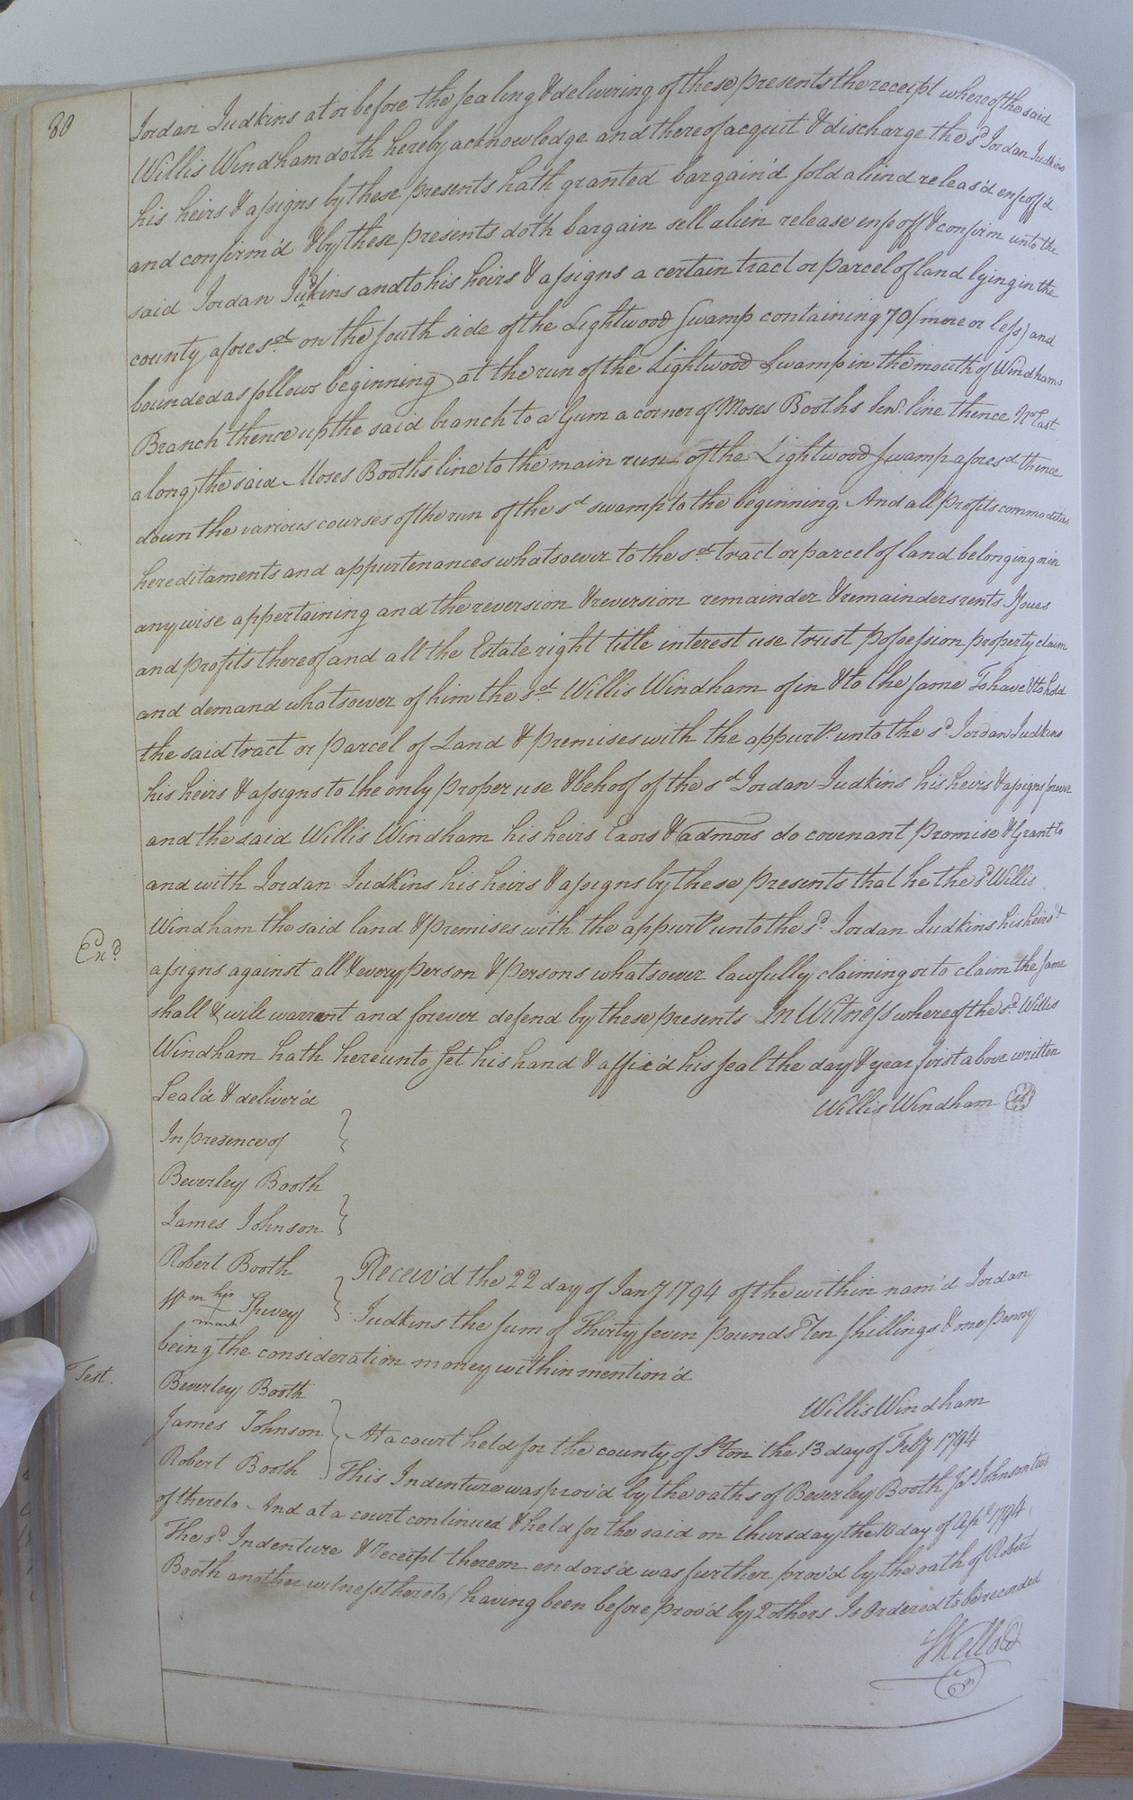 80
Jordan Judkins at or before the sealing & delivering of these presents the receipt whereof the said
Willis Windham doth hereby acknowledge and thereof acquit & discharge the sd Jordan Judkins
his heirs & assigns by these presents hath granted bargain'd sold aliend releas'd enfeoff'd
and confirm'd & by these presents doth bargain sell alien release enfeoff & confirm unto the
said Jordan Judkins and to his heirs & assigns a certain tract or parcel of land lying in the
county aforesd. on the south side of the Lightwood Swamp containing 70 (more or less) and
bounded as follows beginning at the run of the Lightwood Swamp in the mouth of Windhams
Branch thence up the said branch to a Gum a corner of Moses Booths line thence No. East
along the said Moses Booths line to the main run of the Lightwood Swamp aforesd thence
down the various courses of the run of the sd swamp to the beginning. And all profits commodities
hereditaments and appurtenances whatsoever to the sd. tract or parcel of land belonging or in
any wise appertaining and the reversion & reversion remainder & remainders rents Issues
and profits thereof and all the Estate right title interest use trust possession property claim
and demand whatsoever of him the sd. Willis Windham of in & to the same To have & to hold
the said tract or parcel of Land & premises with the appurts. unto the sd. Jordan Judkins
his heirs & assigns to the only proper use & behoof of the sd Jordan Judkins his heirs & assigns forever
and the said Willis Windham his heirs Exors & admors do covenant promise & Grant to
and with Jordan Judkins his heirs & assigns by these presents that he the sd Willis
Windham the said land & premises with the appurts unto the sd. Jordan Judkins his heirs &
Exd.
assigns against all & every person & persons whatsoever lawfully claiming or to claim the same
shall & will warrant and forever defend by these presents In Witness whereof the sd. Willis
Windham hath hereunto set his hand & affix'd his seal the day & year first above written
Seal'd & deliver'd
Willis Windham
In presence of
Beverley Booth
James Johnson
Robert Booth
Wm his mark Spivey
Receiv'd the 22 day of Jany 1794 of the within nam'd Jordan
Judkins the sum of Thirty seven pounds Ten shillings & one penny
being the consideration money within mention'd
Test.
Beverley Booth
Willis Windham
James Johnson
Robert Booth
At a court held for the county of S.ton the 13 day of Feby 1794
This Indenture was prov'd by the oaths of Beverley Booth Jas Johnson two
of thereto And at a court continued & held for the said on thursday the 10 day of Apl 1794
The sd. Indenture & Receipt thereon endors'd was further prov'd by the oath of Robert
Booth another witness thereto (having been before prov'd by 2 others Is Ordered to be recorded